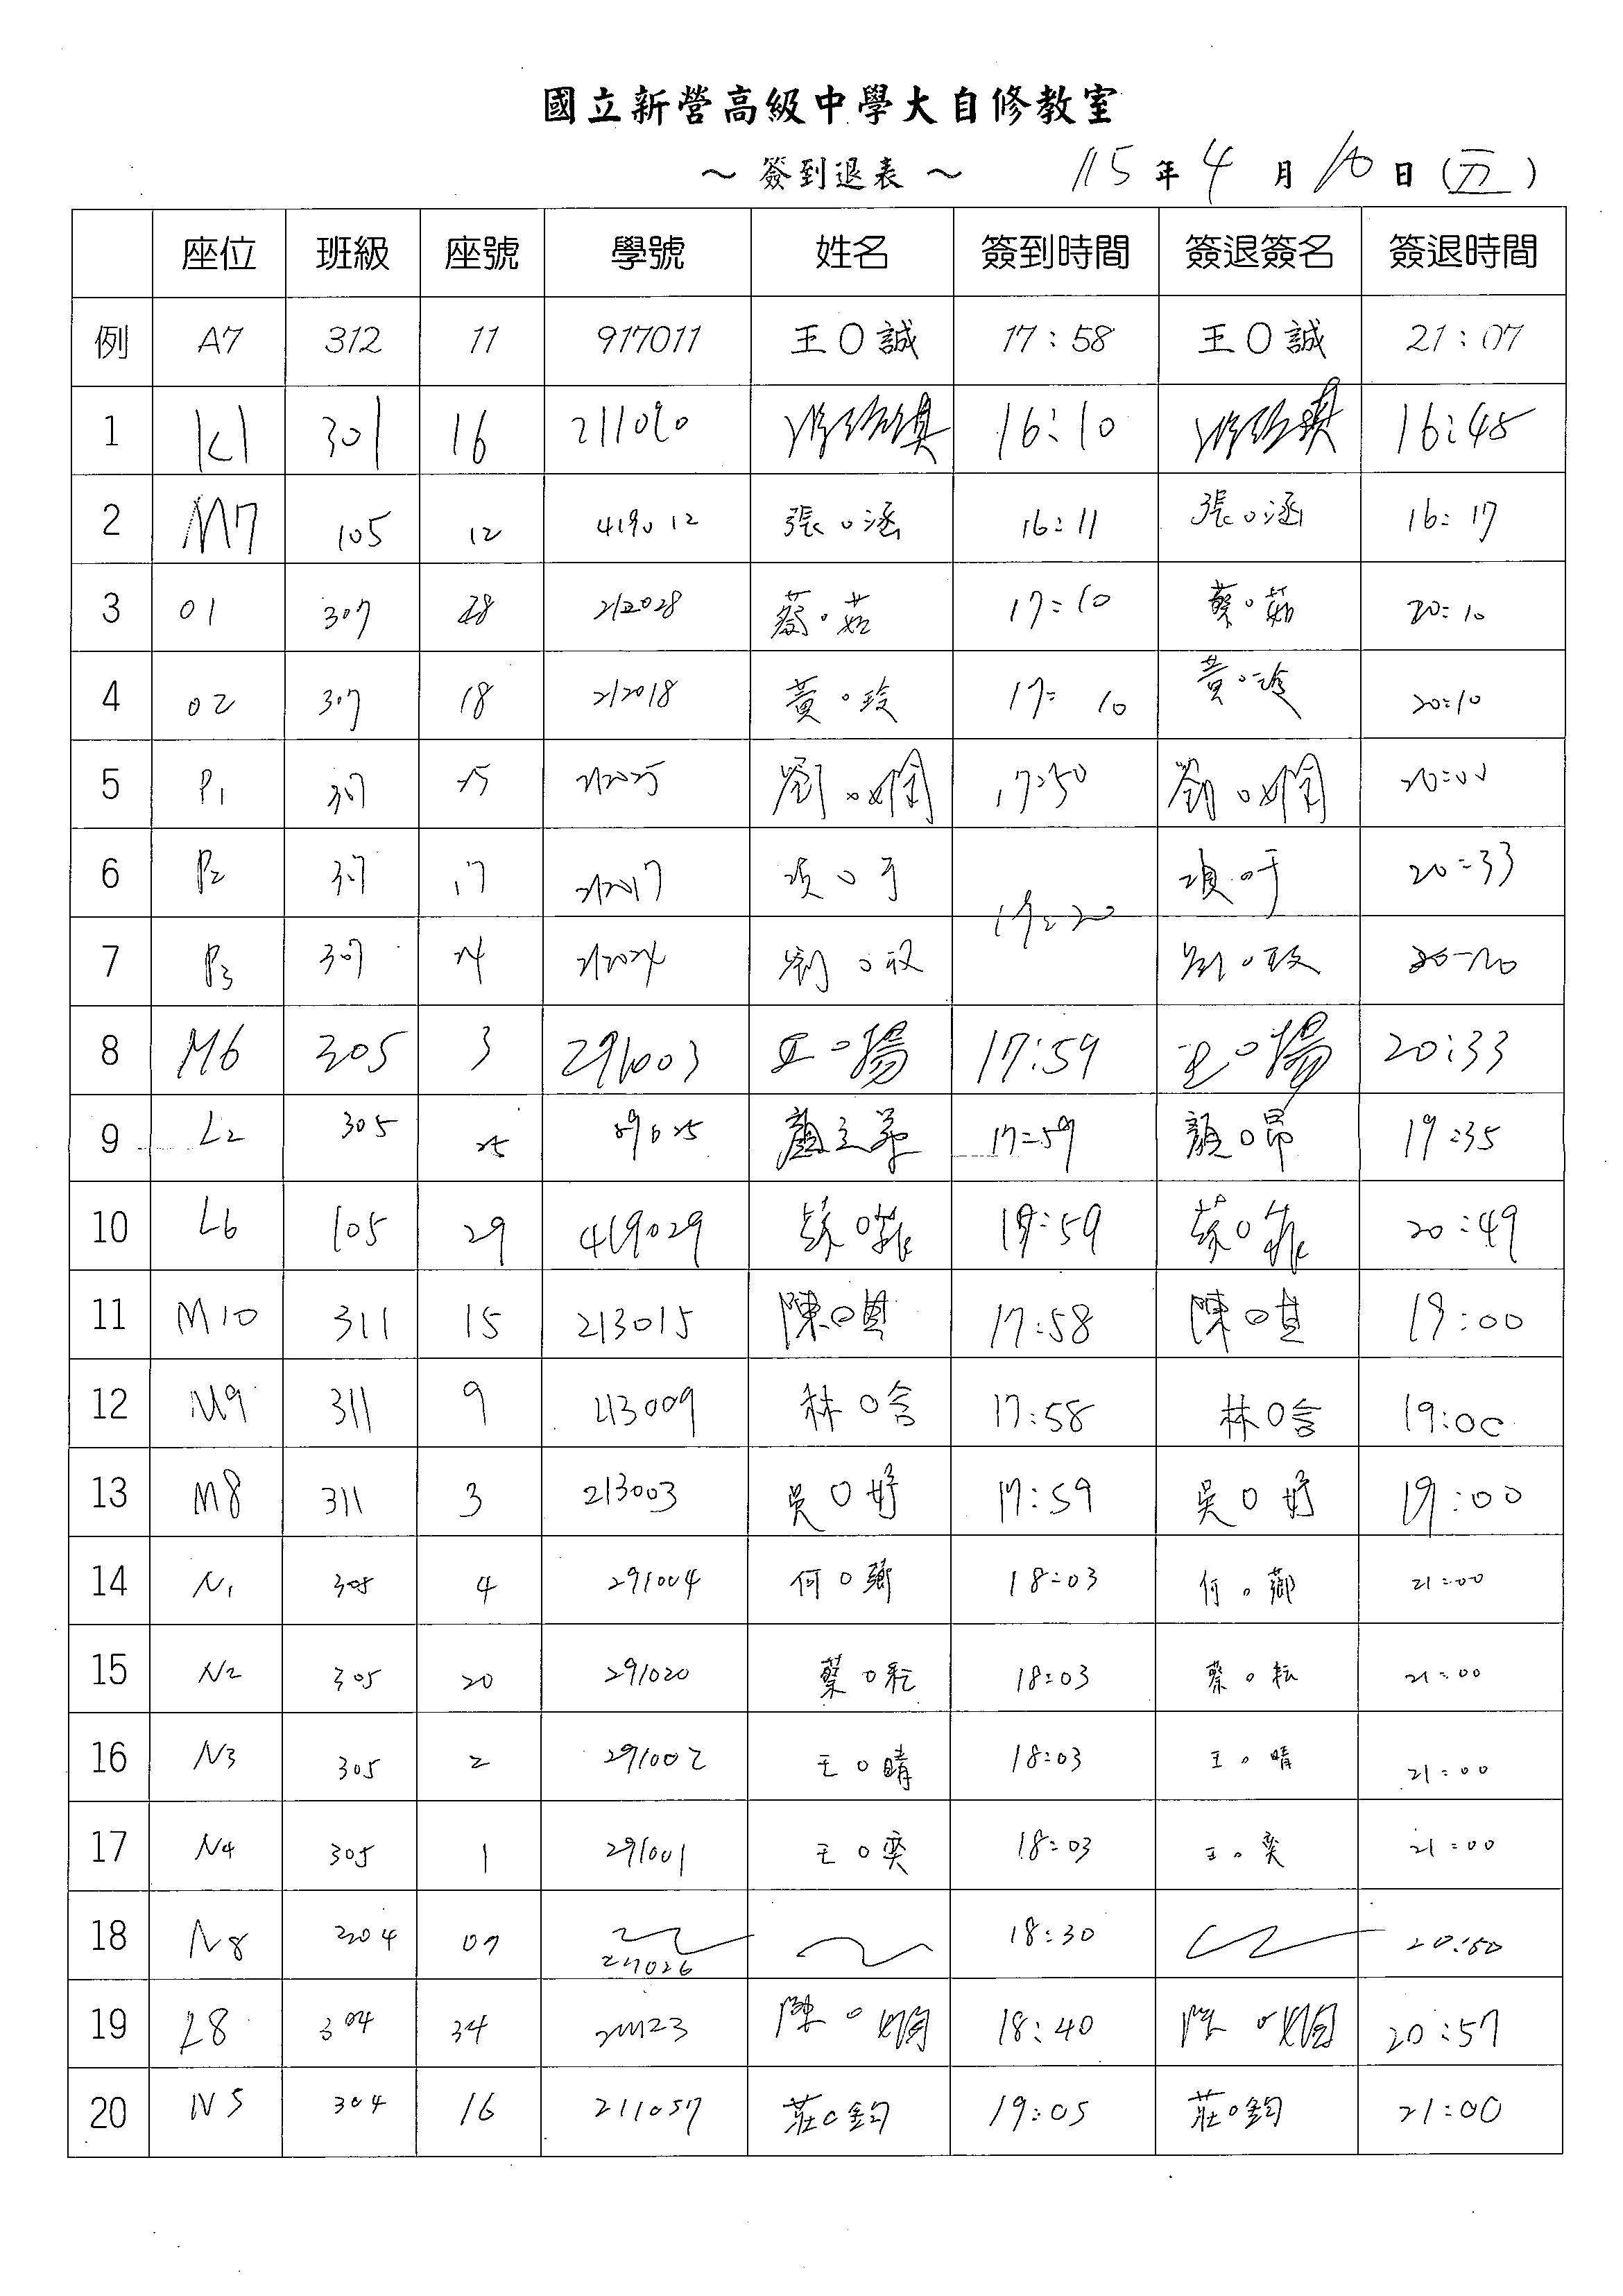 國立新營高級中學大自修教室
～ 簽到退表 ～ 115 年 4 月 10 日 (五)
座位 班級 座號 學號 姓名 簽到時間 簽退簽名 簽退時間
例 A7 312 11 917011 王O誠 17:58 王O誠 21:07
1 K1 301 16 16:10 16:48
2 M7 105 12 419012 張O涵 16:11 張O涵 16:17
3 O1 307 28 212028 蔡O茹 17:10 蔡O茹 20:10
4 O2 307 18 212018 黃O玲 17:10 黃O玲 20:10
5 P1 307 25 212025 劉O 17:50 劉O 20:00
6 P2 307 17 212017 O于 O于 20:33
7 P3 307 24 212024 劉O 劉O
8 M6 305 3 291003 王O揚 17:59 王O揚 20:33
9 L2 305 25 顏 17:59 顏O昂 19:35
10 L6 105 29 419029 蔡O 17:59 蔡O 20:49
11 M10 311 15 213015 陳O真 17:58 陳O真 19:00
12 M9 311 9 213009 林O含 17:58 林O含 19:00
13 M8 311 3 213003 吳O妤 17:59 吳O妤 19:00
14 N1 305 4 291004 何O 18:03 何O 21:00
15 N2 305 20 291020 蔡O耘 18:03 蔡O耘 21:00
16 N3 305 2 291002 王O晴 18:03 王O晴 21:00
17 N4 305 1 291001 王O奕 18:03 王O奕 21:00
18 N8 304 07 18:30 20:50
19 L8 304 34 陳O嫻 18:40 陳O嫻 20:57
20 N5 304 16 211057 莊O鈞 19:05 莊O鈞 21:00